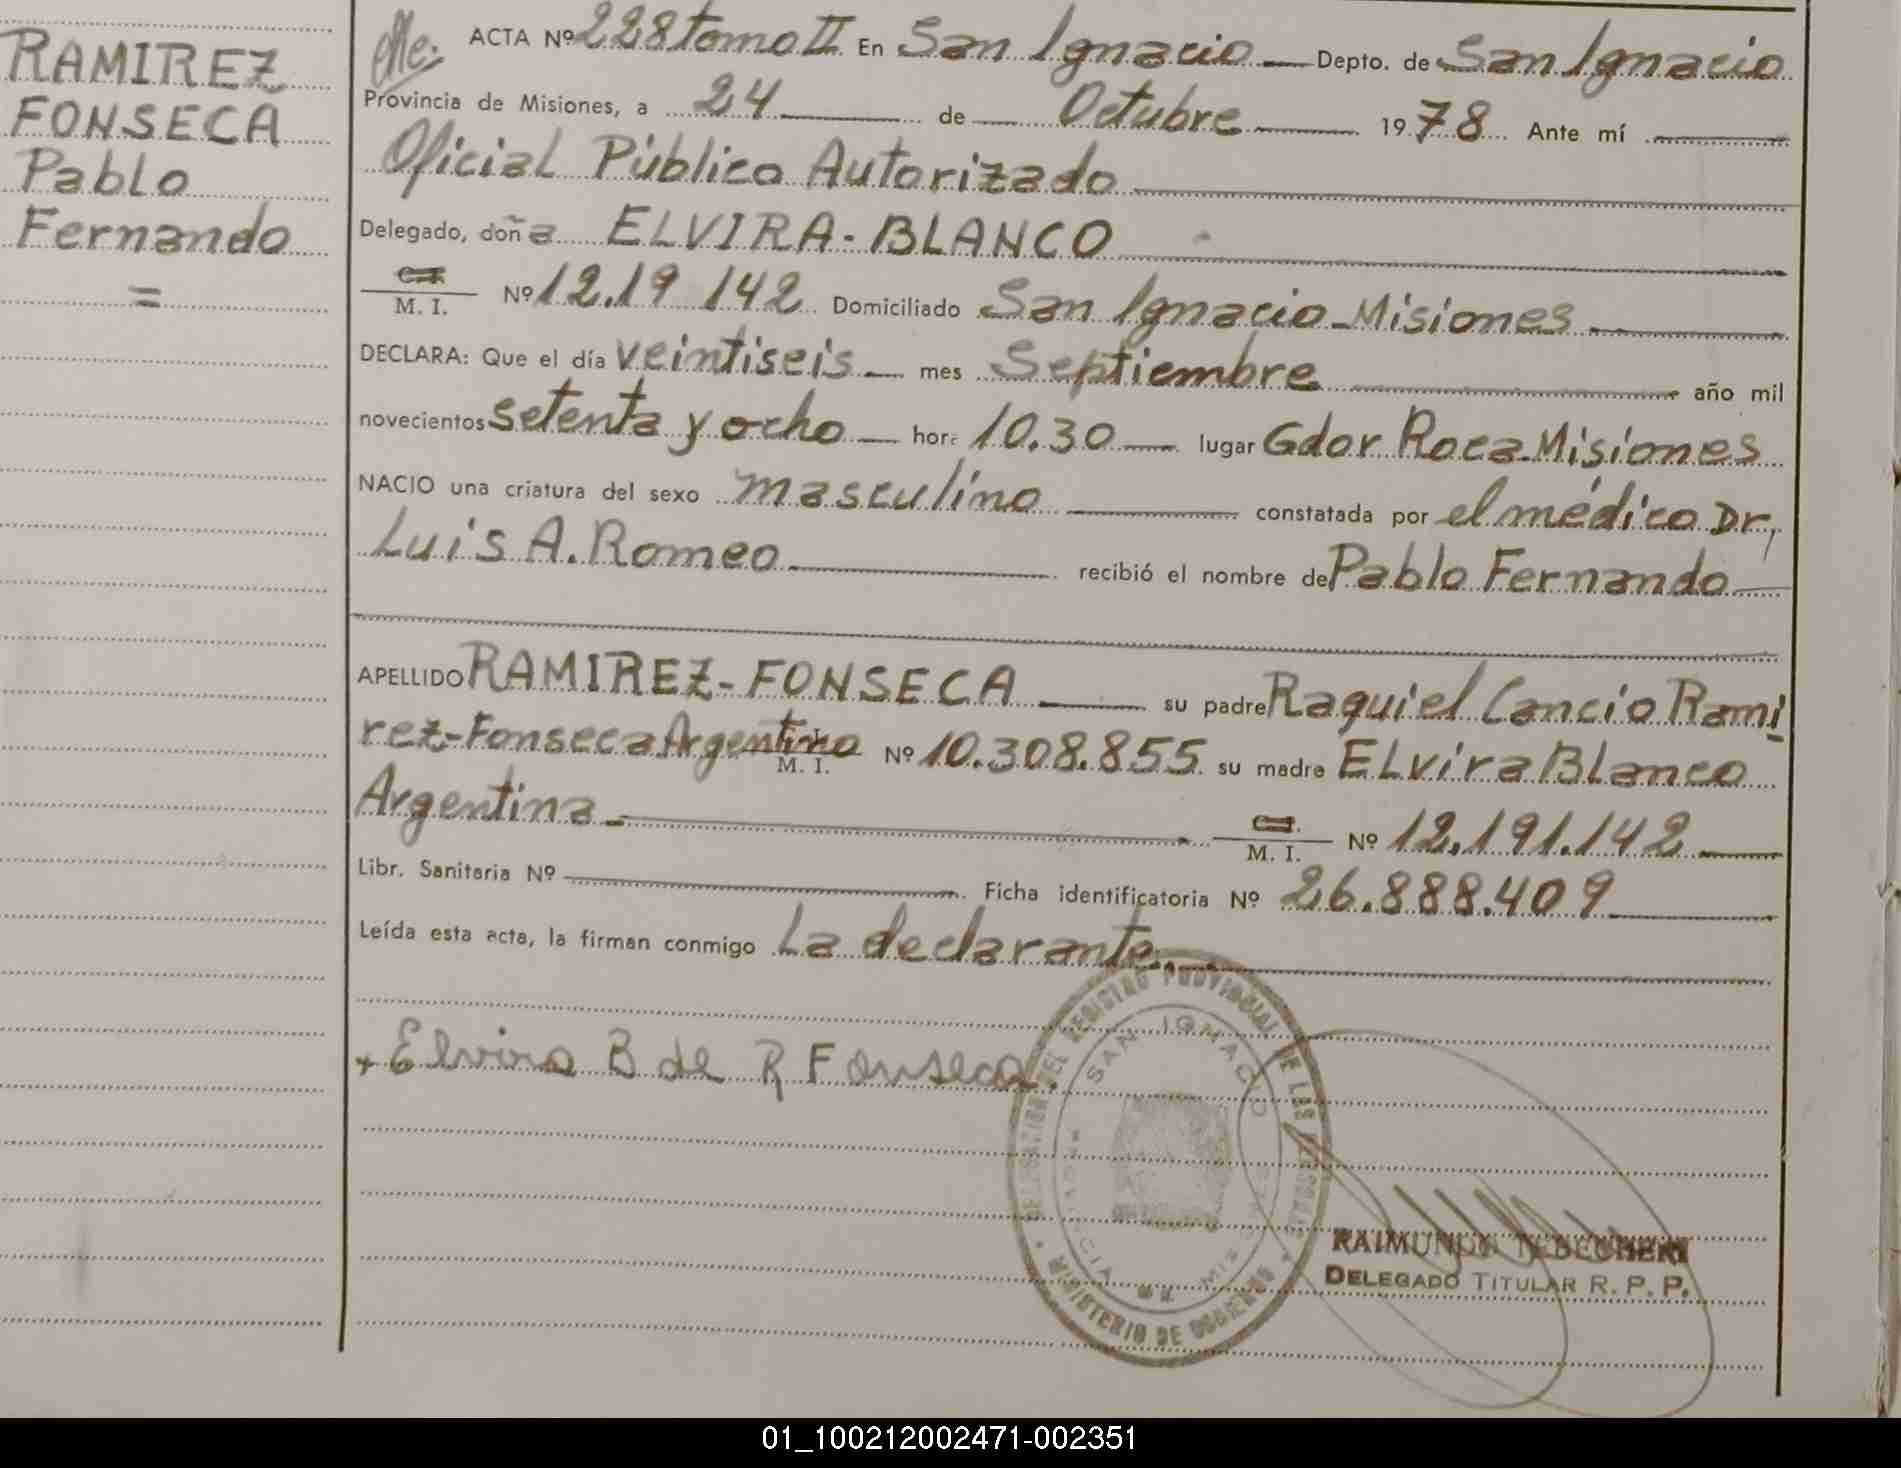 RAMIREZ
FONSECA
Pablo
Fernando
=
ACTA Nº 228 tomo II En San Ignacio — Depto. de San Ignacio
Provincia de Misiones, a 24 — de — Octubre — 1978 Ante mí —
Oficial Público Autorizado —
Delegado, doña ELVIRA-BLANCO
C.I.
M. I. Nº 12.19 142 Domiciliado San Ignacio-Misiones —
DECLARA: Que el día veintiseis — mes Septiembre — año mil
novecientos setenta y ocho — hora 10.30 — lugar Gdor Roca-Misiones
NACIO una criatura del sexo masculino — constatada por el médico Dr,
Luis A. Romeo — recibió el nombre de Pablo Fernando —
APELLIDO RAMIREZ-FONSECA — su padre Raquiel Cancio Rami
rez-Fonseca Argentino M. I. Nº 10.308.855 su madre ELvira BLanco
Argentina — C.I.
M. I. Nº 12.191.142 —
Libr. Sanitaria Nº — Ficha identificatoria Nº 26.888.409 —
Leída esta acta, la firman conmigo La declarante. —
+ Elvira B de R Fonseca.
DELEGACION DEL REGISTRO PROVINCIAL DE LAS PERSONAS
SAN IGNACIO
MINISTERIO DE GOBIERNO
RAIMUNDO
DELEGADO TITULAR R. P. P.
01_100212002471-002351